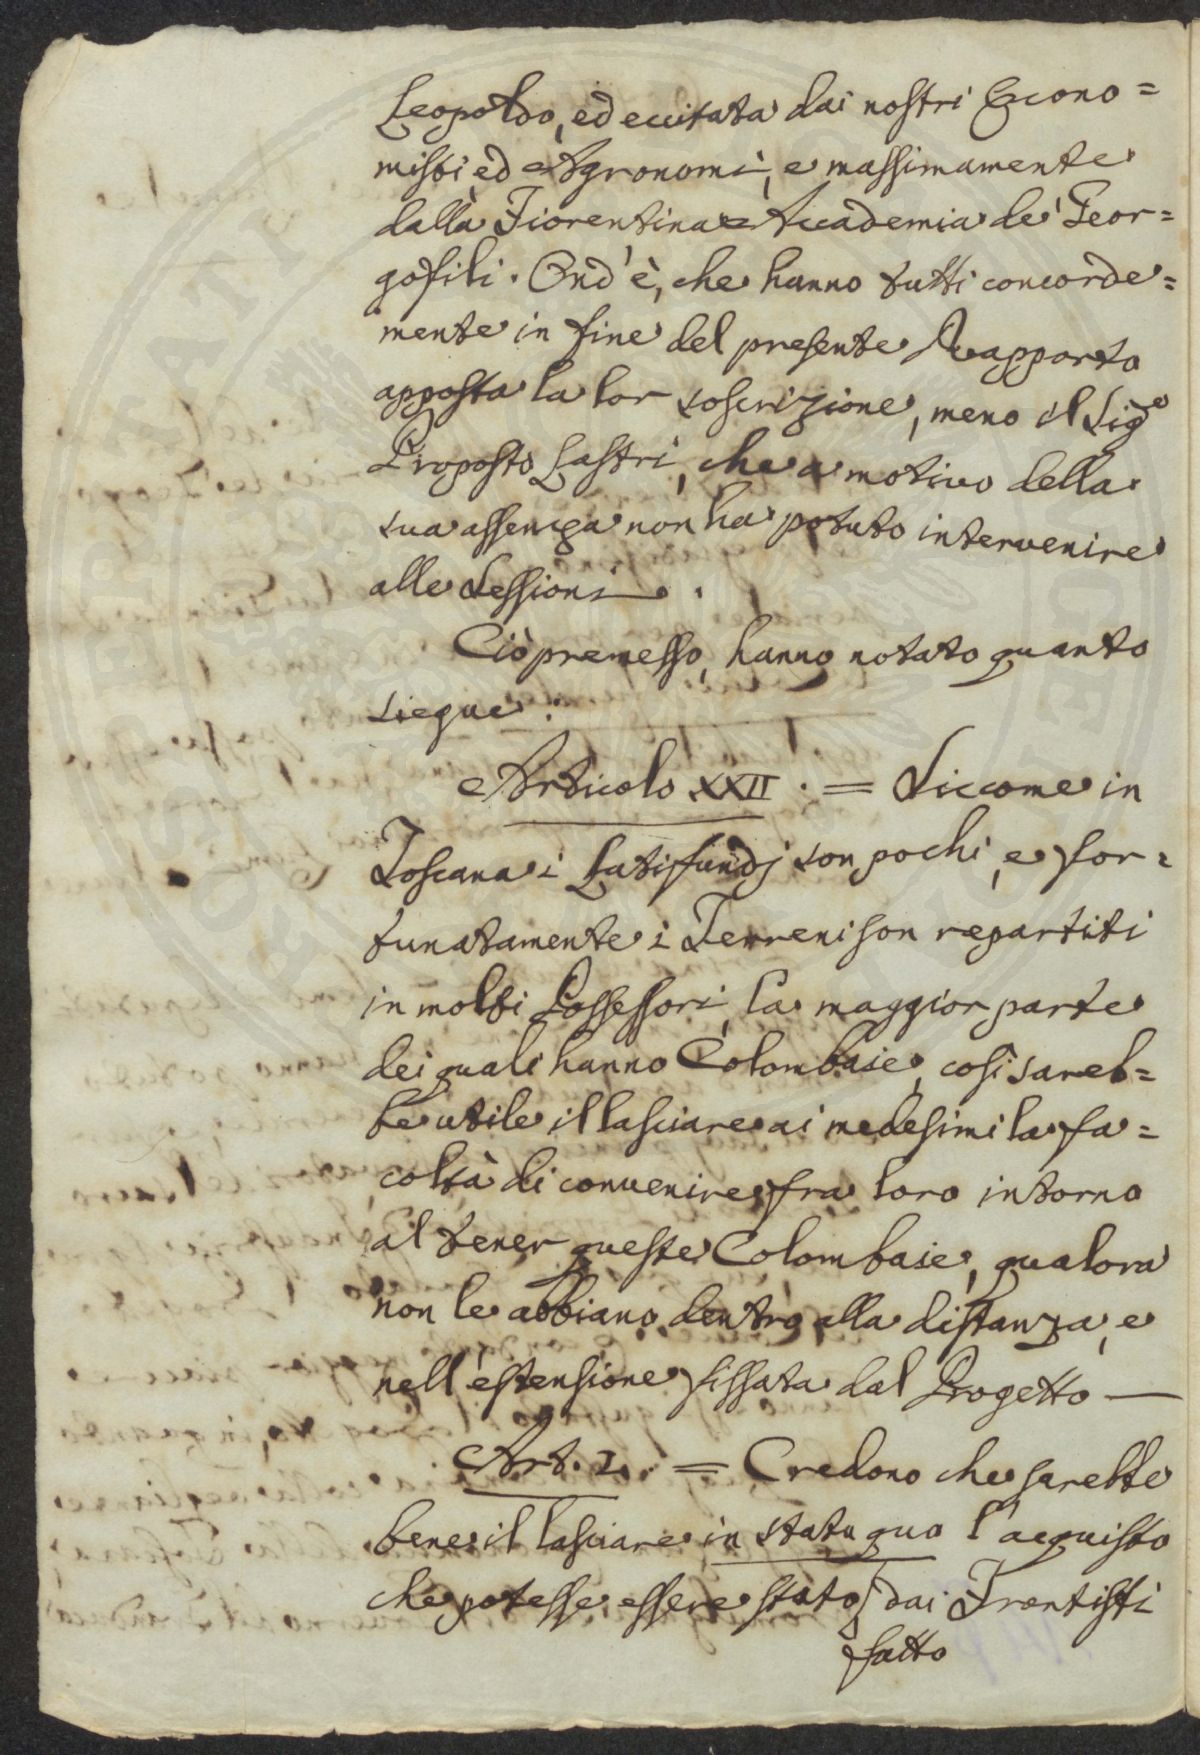 Leopoldo, ed eccitata dai nostri Econo=
misti, ed Agronomi, e massimamente
dalla Fiorentina Accademia de' Geor=
gofili. Ond'è, che hanno tutti concorde=
mente in fine del presente Rapporto
apposta la lor soscrizione, meno il Sigo
Proposto Lastri, che a motivo della
sua assenza non ha potuto intervenire
alle Sessioni.
Ciò premesso, hanno notato quanto
siegue:
Articolo XXII. = Siccome in
Toscana i Latifundj son pochi, e for=
tunatamente i Terreni son repartiti
in molti Possessori, la maggior parte
dei quali hanno Colombaie, così sareb=
be utile il lasciare ai medesimi la fa=
coltà di convenire fra loro intorno
al tener queste Colombaie, qualora
non le abbiano dentro alla distanza, e
nell'estensione fissata dal Progetto —
Art. L. = Credono che sarebbe
bene il lasciare in statu quo l'acquisto
che potesse essere stato dai Frontisti
fatto